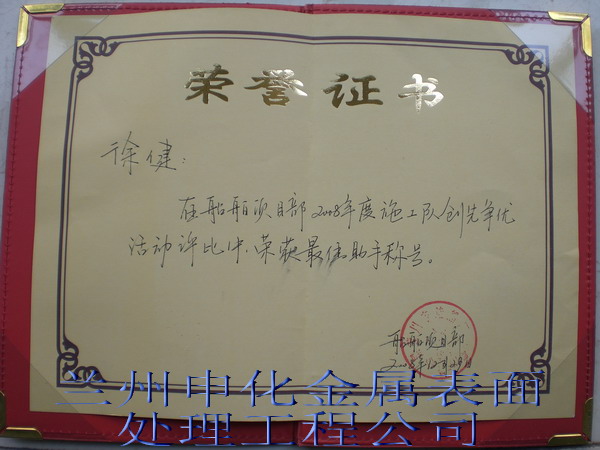 荣誉证书
徐健：
在船舶项目部2008年度施工队创先争优
活动评比中,荣获最佳助手称号。
船舶项目部
2008年12月29日
兰州中化金属表面
处理工程公司